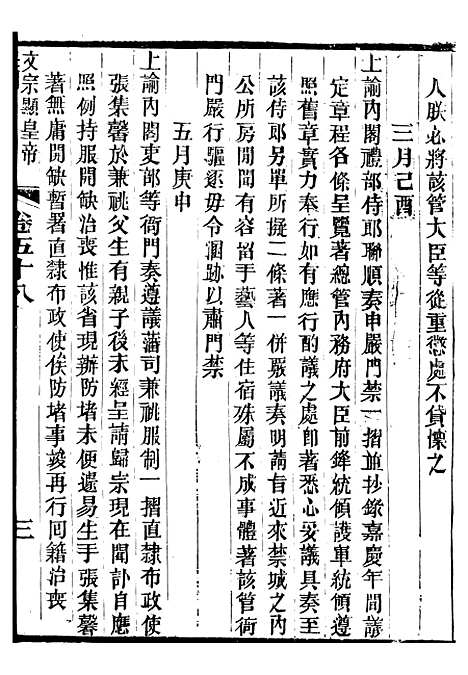 人朕必將該管大臣等從重懲處不貸懍之
三月己酉
上諭內閣禮部侍郎聯順奏申嚴門禁一摺並抄錄嘉慶年間議
定章程各條呈覽著總管內務府大臣前鋒統領護軍統領遵
照舊章實力奉行如有應行酌議之處卽著悉心妥議具奏至
該侍郎另單所擬二條著一併嚴議奏明請旨近來禁城之內
公所房閒閒有容留手藝人等住宿殊屬不成事體著該管衙
門嚴行驅逐毋令溷跡以肅門禁
五月庚申
上諭內閣吏部等衙門奏遵議藩司兼祧服制一摺直隸布政使
張集馨於兼祧父生有親子後未經呈請歸宗現在聞訃自應
照例持服開缺治喪惟該省現辦防堵未便遽易生手張集馨
著無庸開缺暫署直隸布政使俟防堵事竣再行囘籍治喪
文宗顯皇帝
卷五十八
三